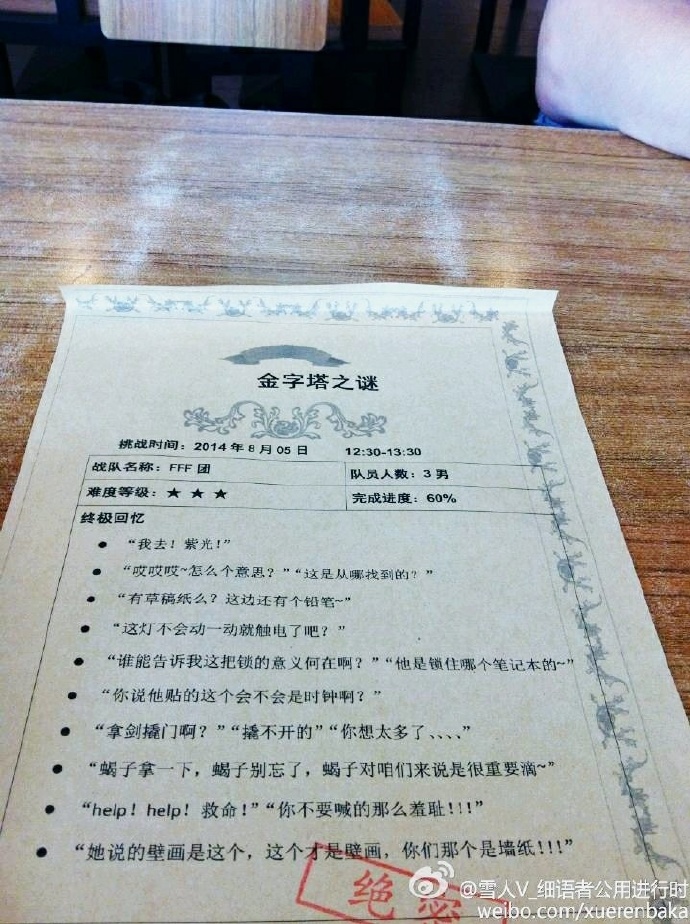 金字塔之谜
挑战时间：2014年8月05日 12:30-13:30
战队名称：FFF 团 队员人数：3 男
难度等级：★ ★ ★ 完成进度：60%
终极回忆
● “我去！紫光！”
● “哎哎哎~怎么个意思？”“这是从哪找到的？”
● “有草稿纸么？这边还有个铅笔~”
● “这灯不会动一动就触电了吧？”
● “谁能告诉我这把锁的意义何在啊？”“他是锁住哪个笔记本的~”
● “你说他贴的这个会不会是时钟啊？”
● “拿剑撬门啊？”“撬不开的”“你想太多了、、、、”
● “蝎子拿一下，蝎子别忘了，蝎子对咱们来说是很重要滴~”
● “help！help！救命！”“你不要喊的那么羞耻!!!”
● “她说的壁画是这个，这个才是壁画，你们那个是墙纸!!!”
绝密
@雪人V_细语者公用进行时
weibo.com/xuerenbaka